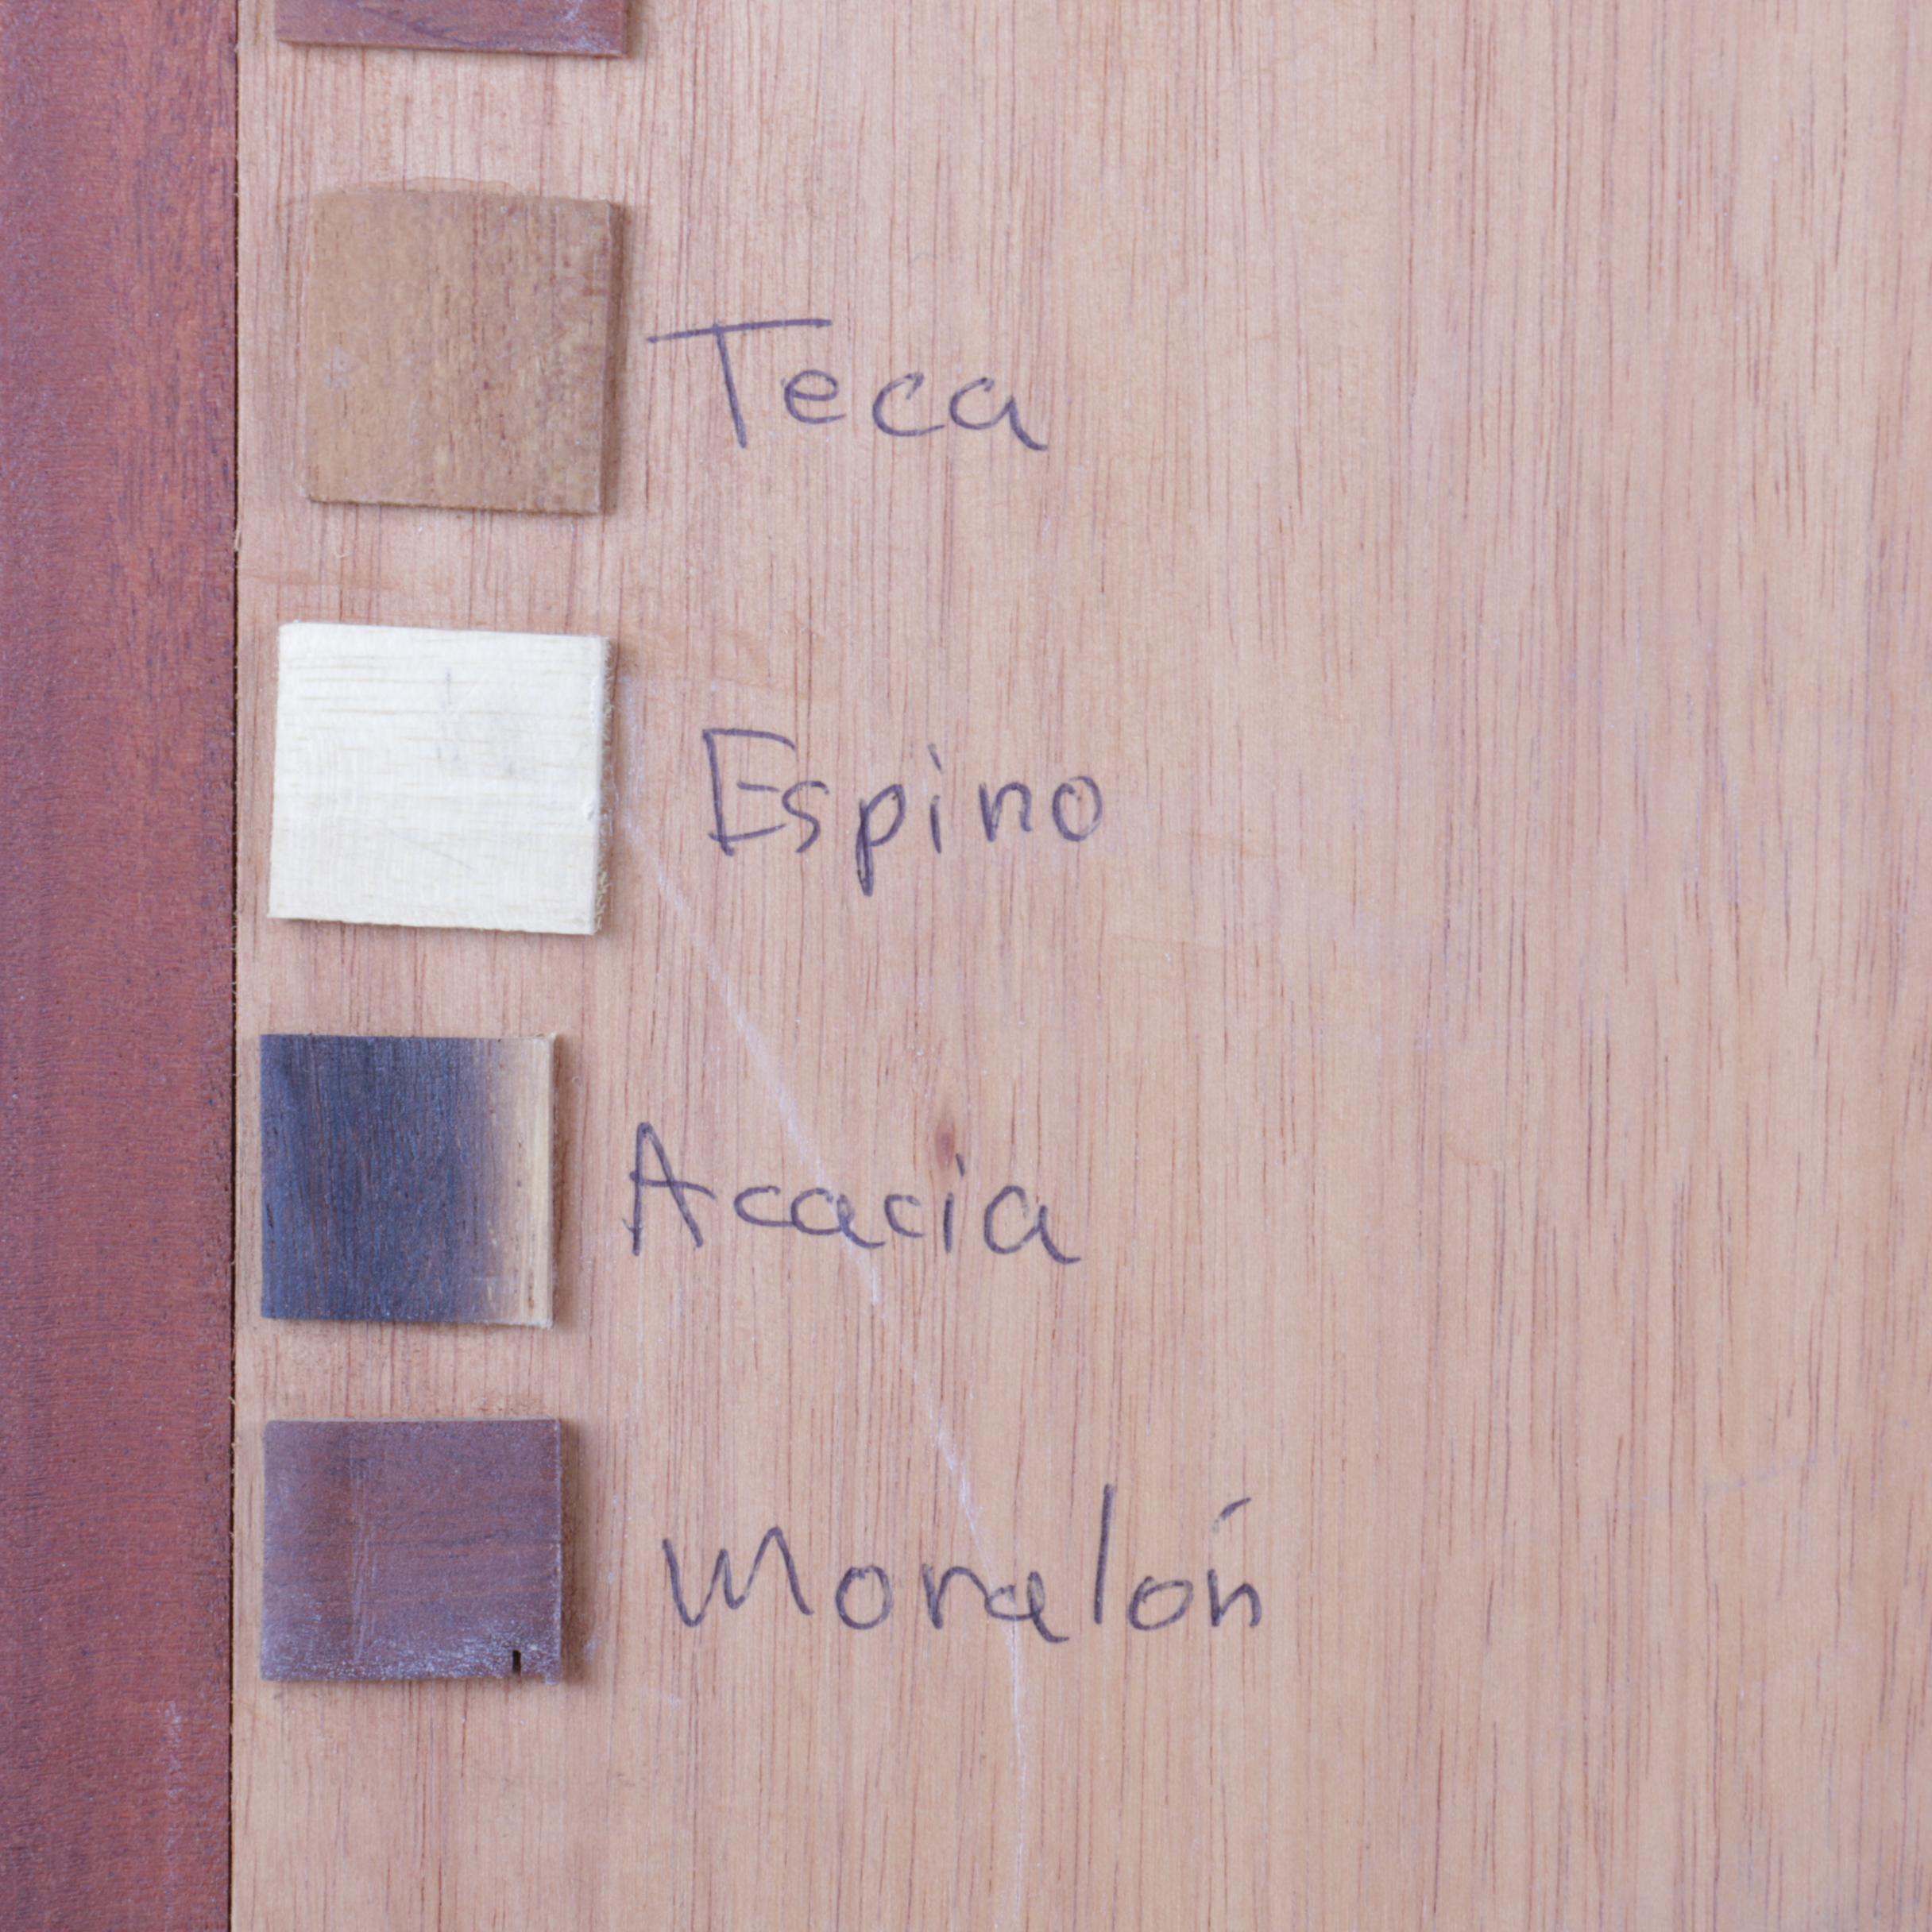 Teca
Espino
Acacia
Moralón